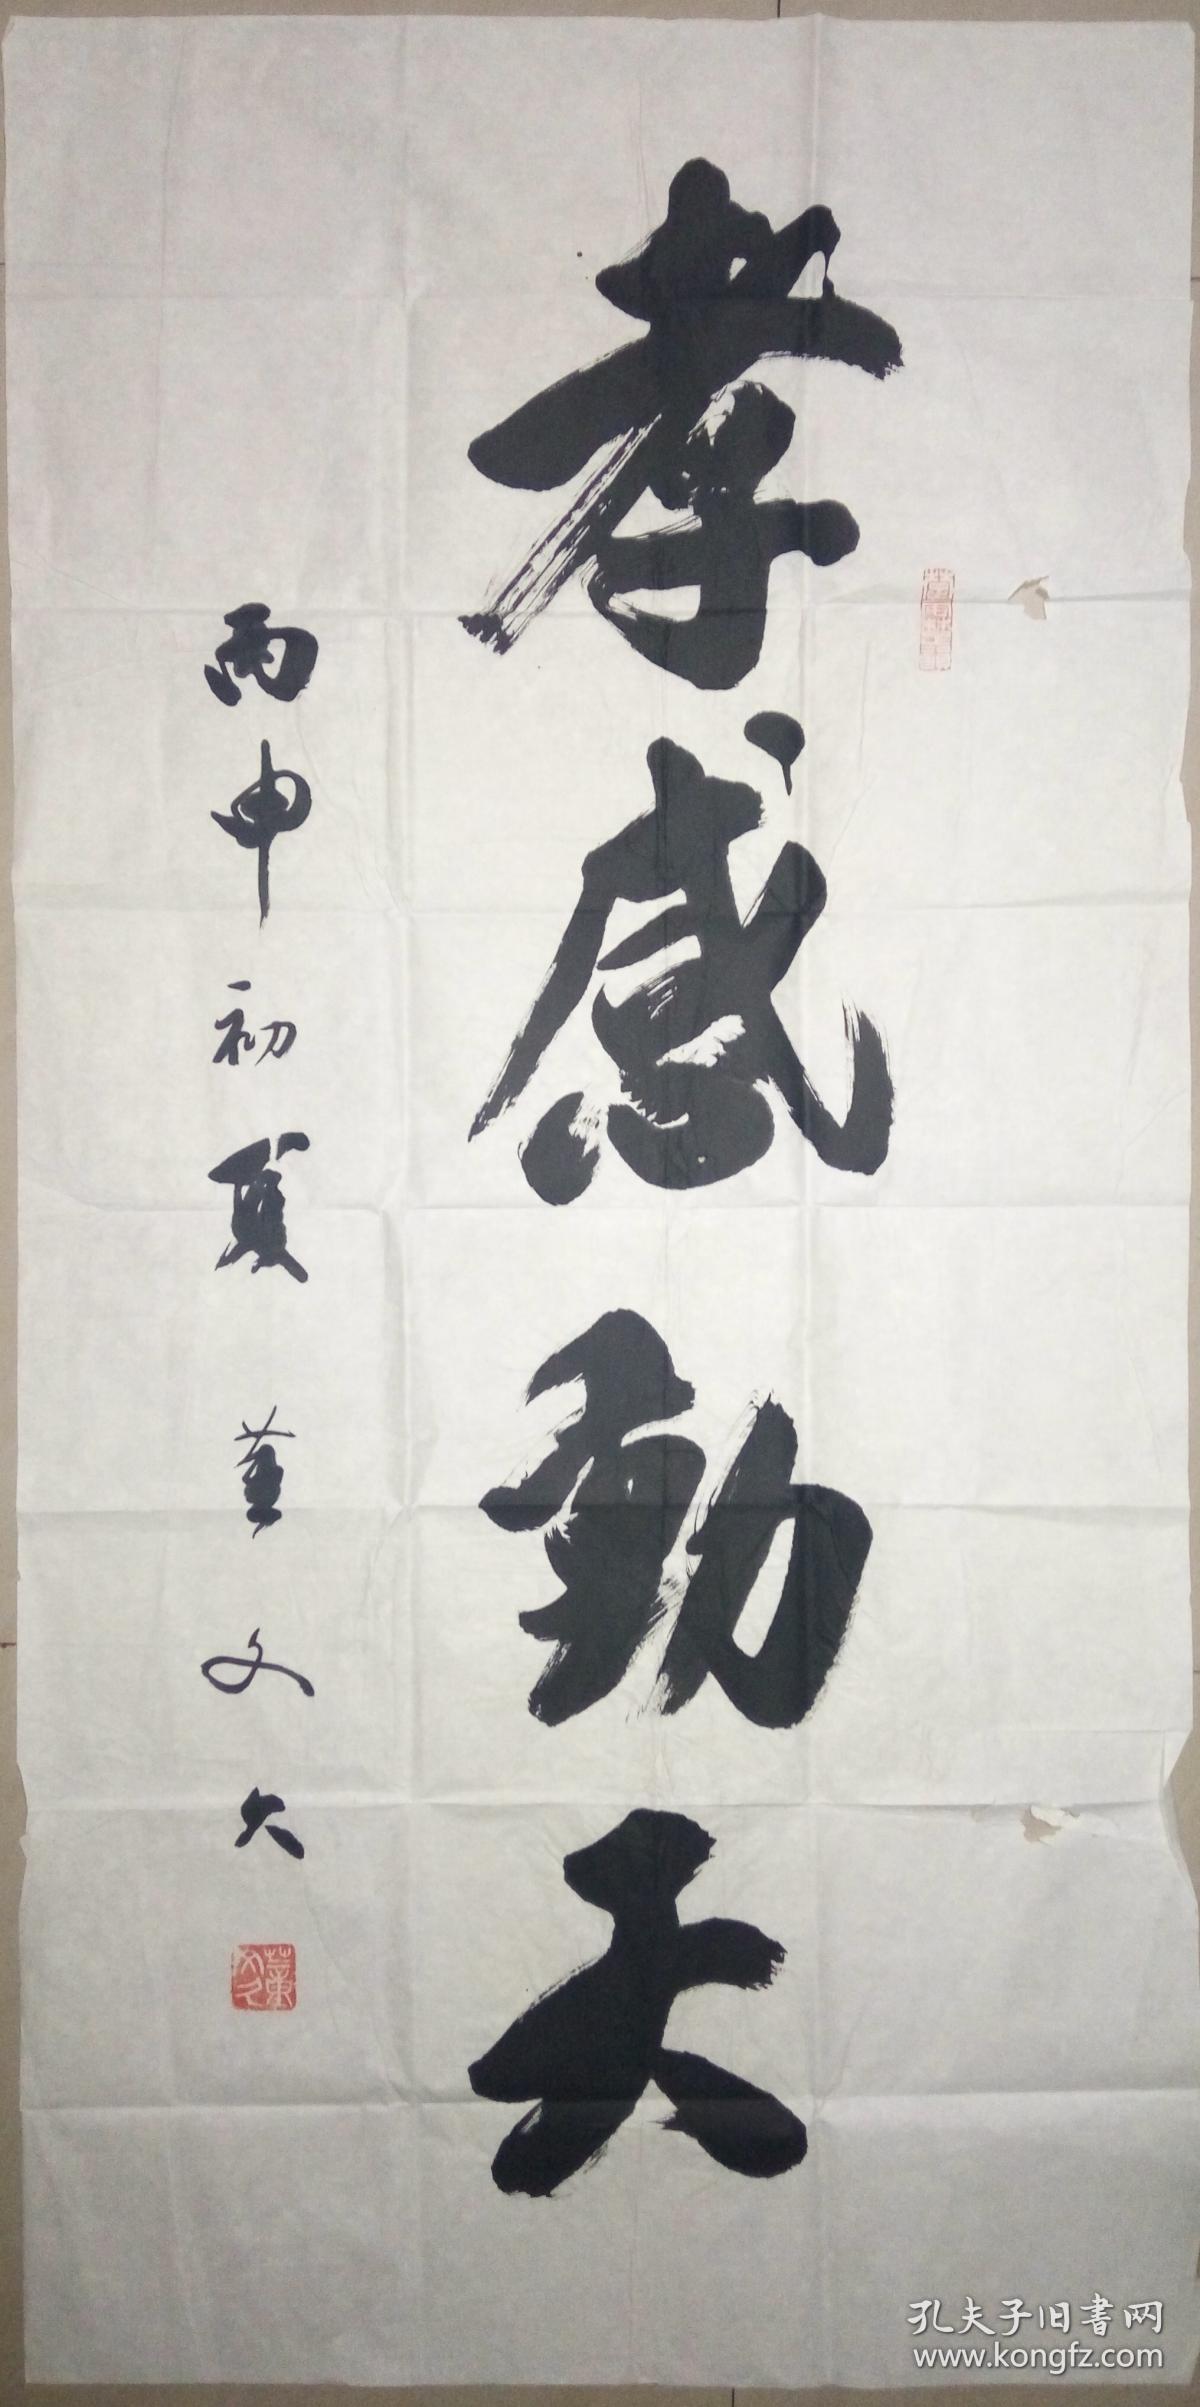 孝感動天
丙申初夏 董文久
董文久
孔夫子旧書网
www.kongfz.com